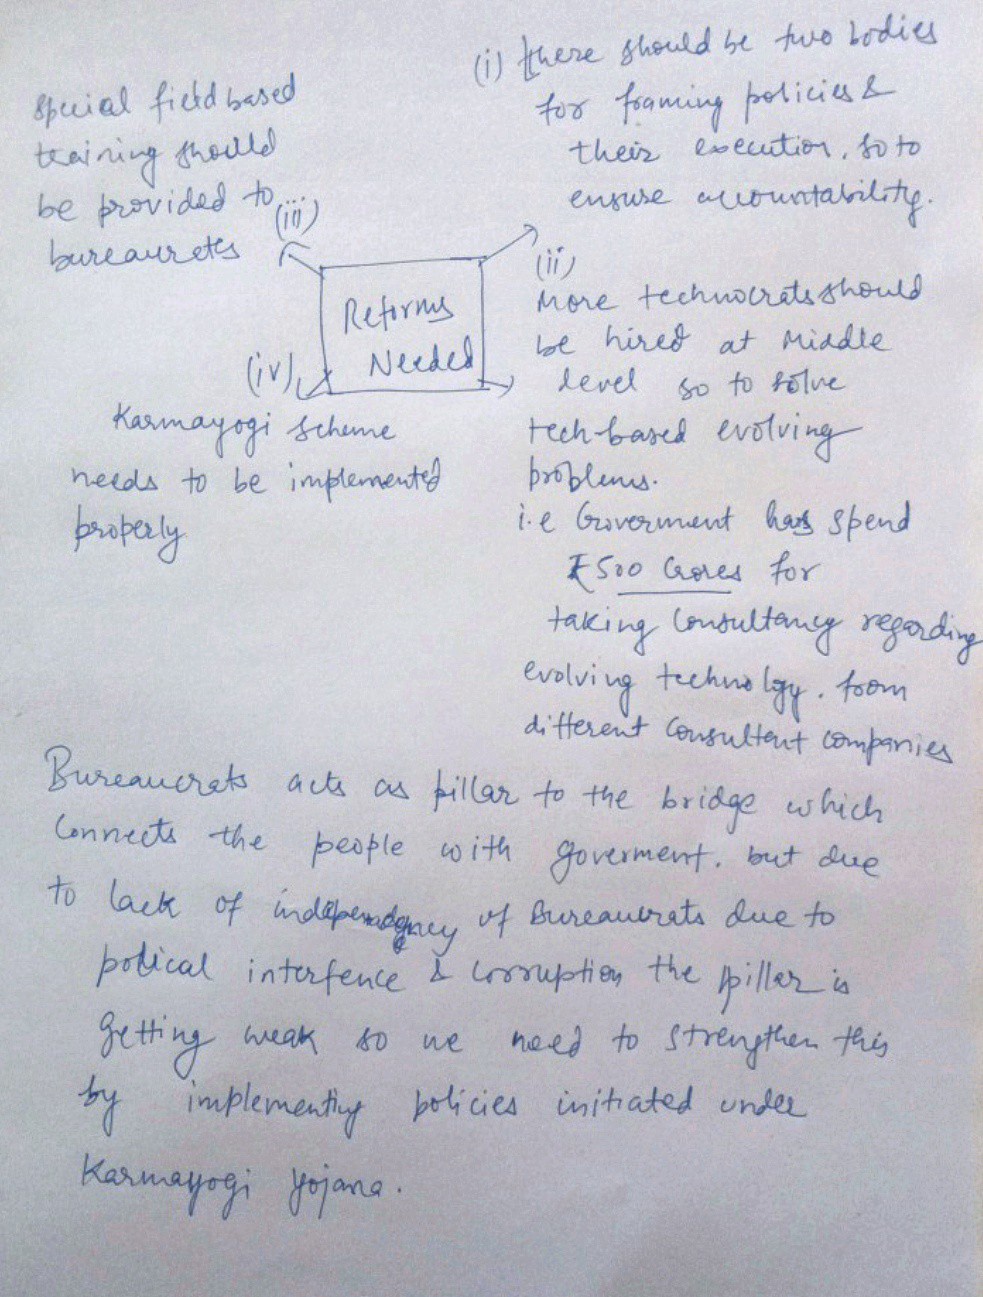 (i) there should be two bodies
for framing policies &
their execution, so to
ensure accountability.
(ii)
More technocrats should
be hired at Middle
level so to solve
tech-based evolving
problems.
i.e Goverment has spend
₹500 Crores for
taking Consultancy regarding
evolving technolgy. from
different Consultent companies
special field based
training should
be provided to
(iii)
bureaucrates
Reforms
Needed
(iv)
Karmayogi scheme
needs to be implemented
properly
Bureaucrats acts as pillar to the bridge which
Connects the people with goverment. but due
to lack of independency of Bureaucrats due to
potical interfence & corruption the pillar is
getting weak so we need to strengthen this
by implementing policies initiated under
Karmayogi yojana.